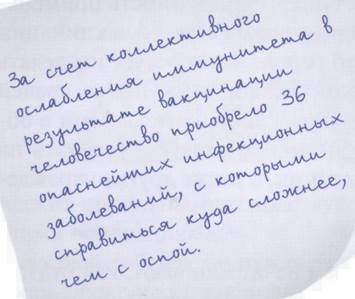 За счет коллективного
ослабления иммунитета в
результате вакцинации
человечество приобрело 36
опаснейших инфекционных
заболеваний, с которыми
справиться куда сложнее,
чем с оспой.